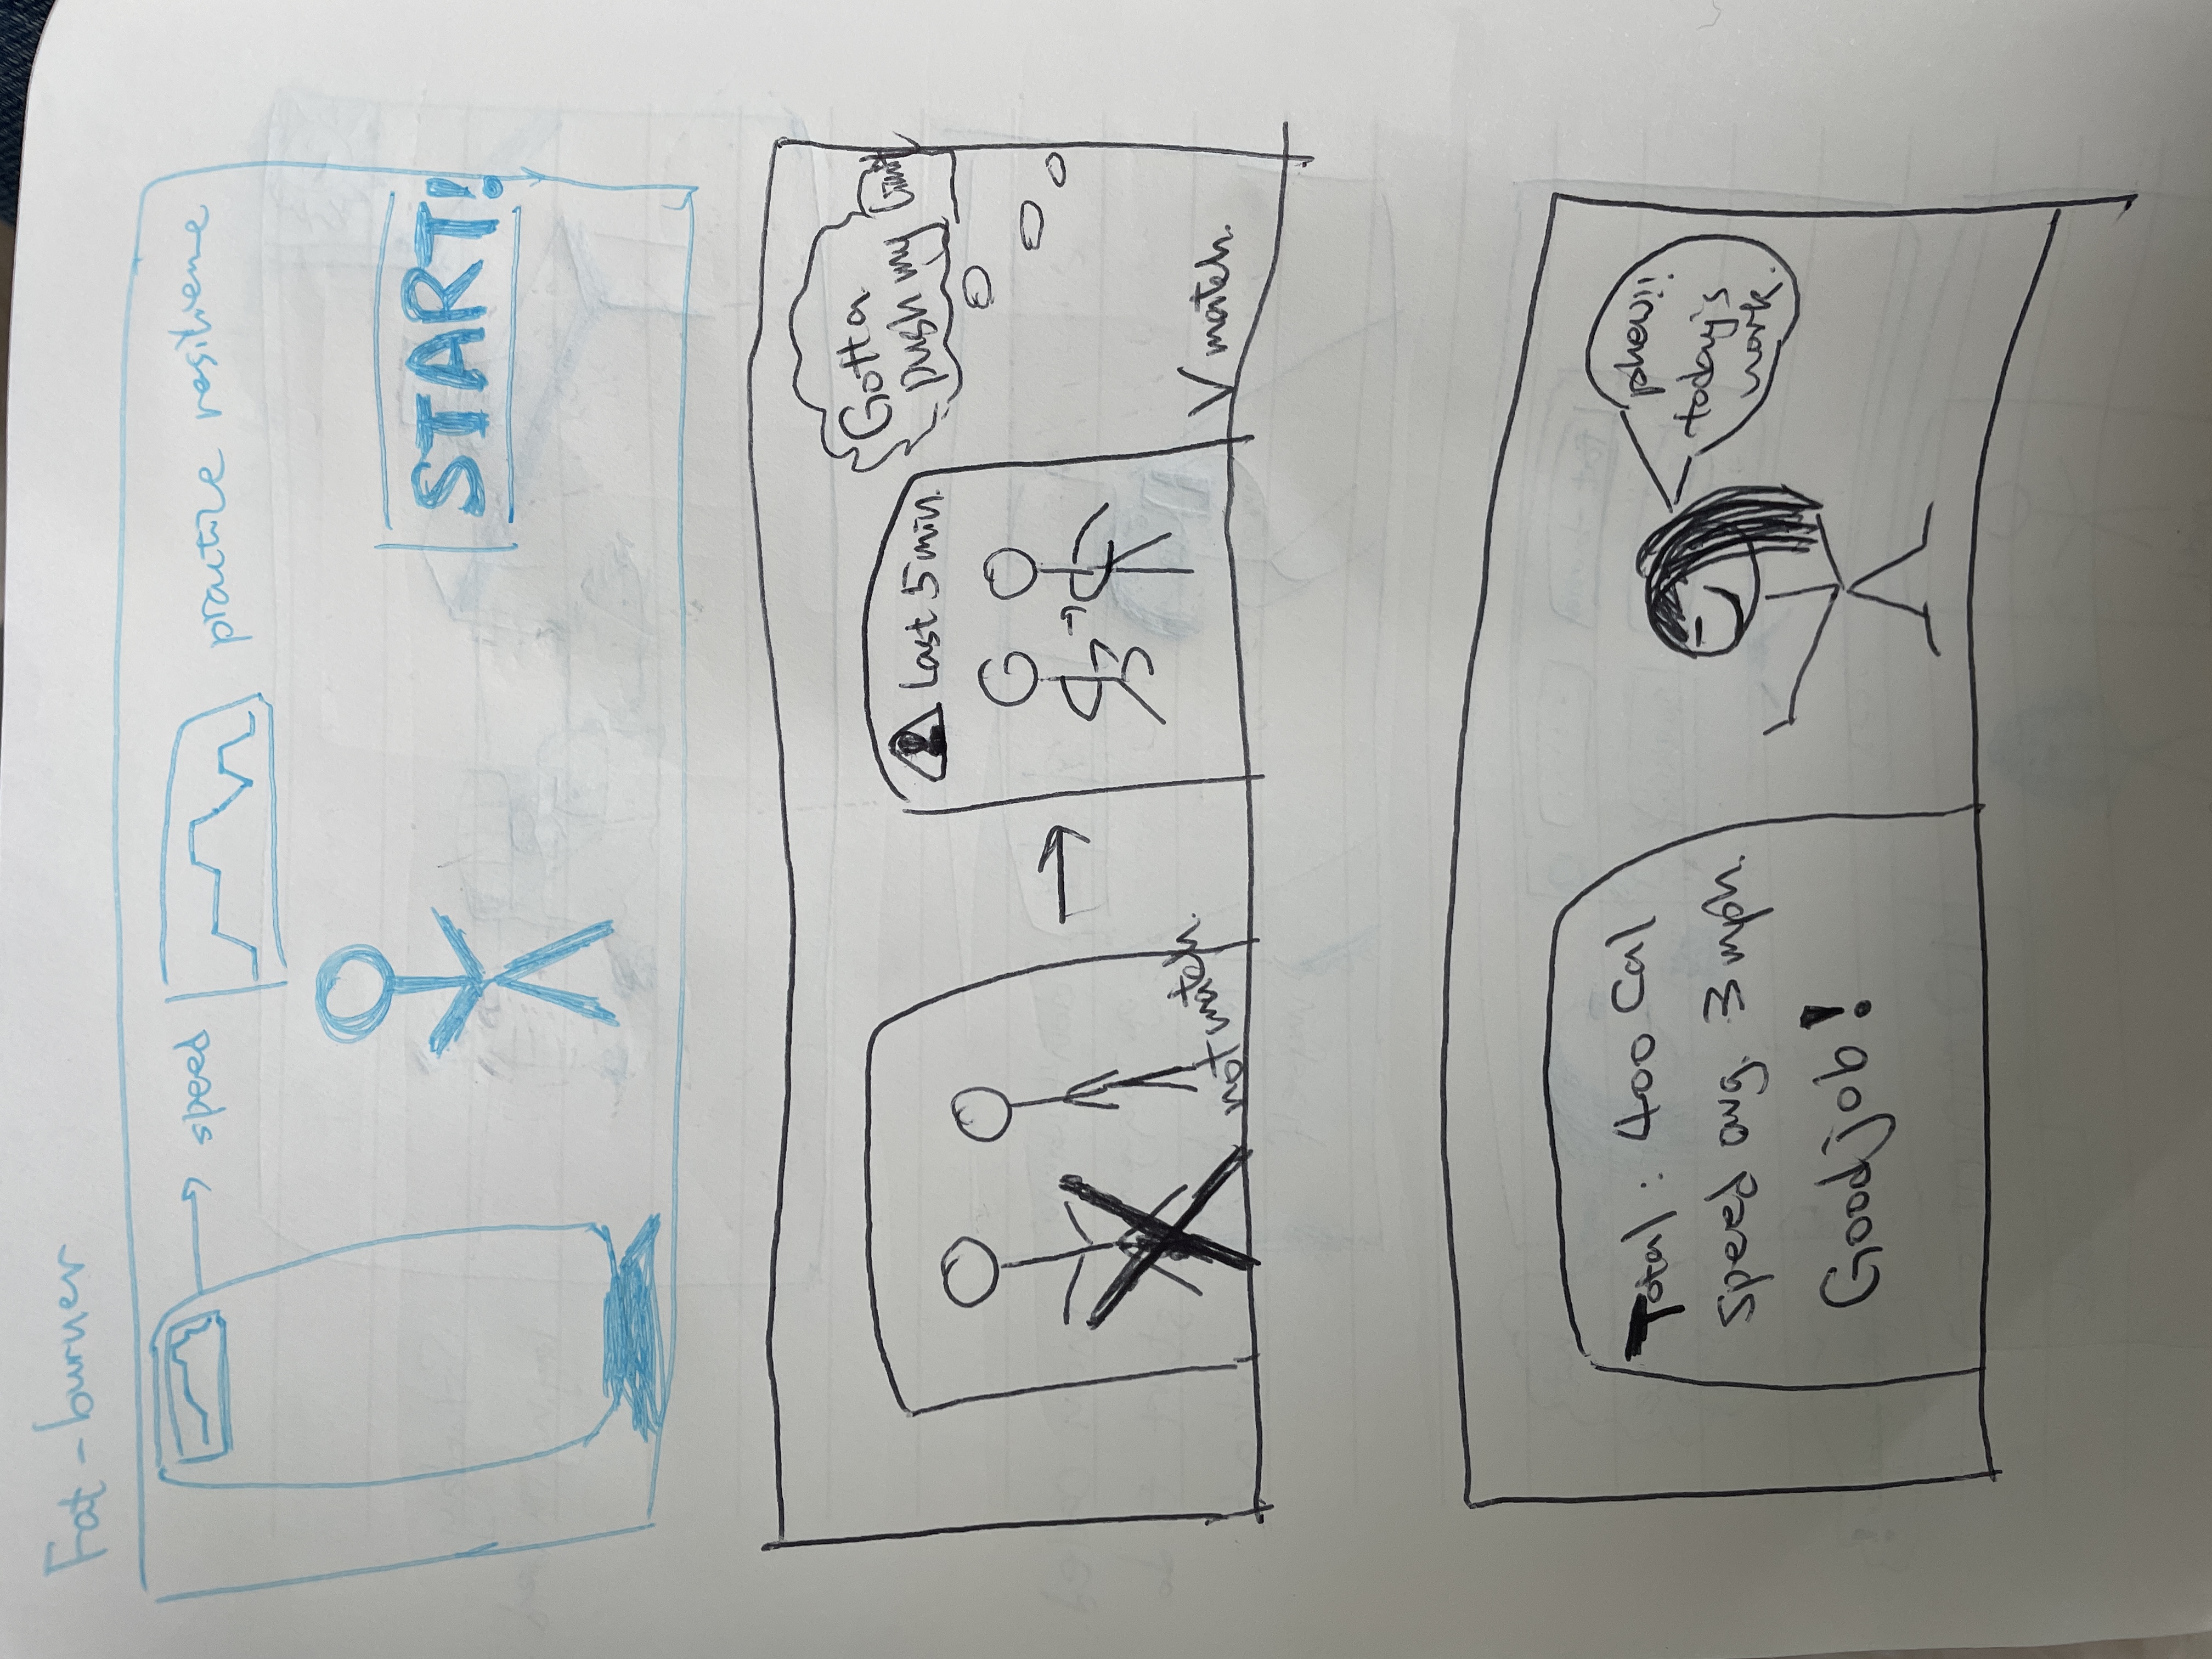 Fat-burner
speed
practice resilience
START!
Gotta
push my limit
Last 5 min.
not match.
V match.
Total : 400 Cal
speed avg. 3 mph.
Good job!
phew!!
today's
work.